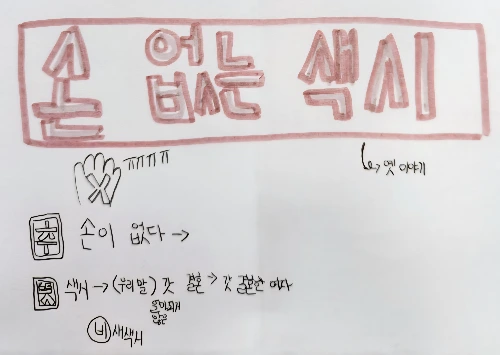 손 없는 색시
ㅠㅠㅠㅠ
↳ 옛 이야기
손이 없다 →
색시 → (우리말) 갓 결혼 → 갓 결혼한 여자
않은
비 새색시